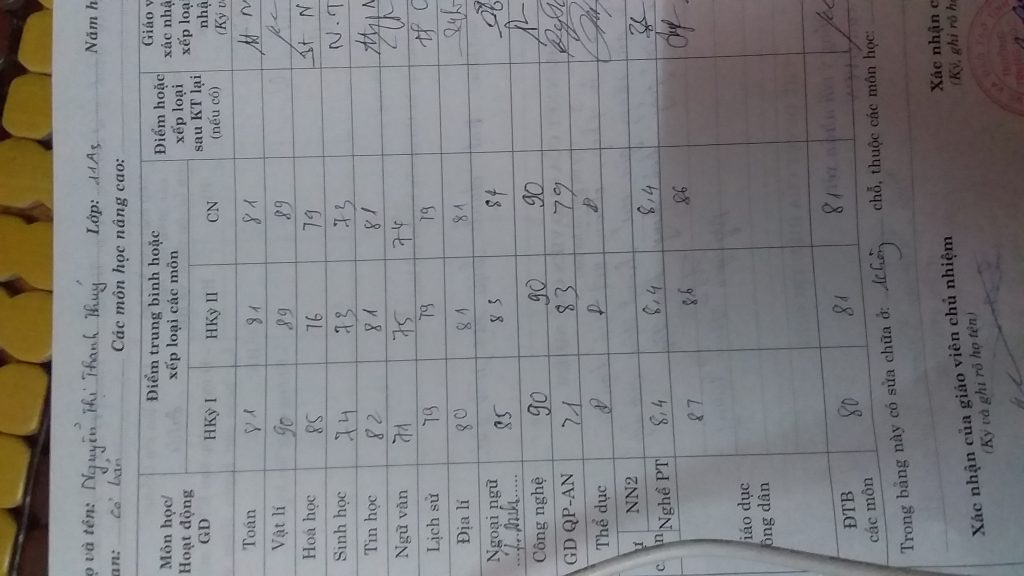 ọ và tên: Nguyễn Thị Thanh Thuý Lớp: 11A5 Năm h
an: Cơ bản Các môn học nâng cao:
Môn học/ Hoạt động GD
Điểm trung bình hoặc xếp loại các môn
HKỳ I HKỳ II CN
Điểm hoặc xếp loại sau KT lại (nếu có)
Giáo v
xác nhận
xếp loại
nhậ
(Ký và
Toán 81 81 81
Vật lí 90 89 89
Hoá học 85 76 79
Sinh học 74 73 73
Tin học 82 81 81
Ngữ văn 71 75 74
Lịch sử 79 79 79
Địa lí 80 81 81
Ngoại ngữ Anh 85 83 84
Công nghệ 90 90 90
GD QP-AN 71 83 79
Thể dục Đ Đ Đ
NN2
Nghề PT 8,4 8,4 8,4
iáo dục ông dân 87 86 86
ĐTB các môn 80 81 81
Trong bảng này có sửa chữa ở: không chỗ, thuộc các môn học:
Xác nhận của giáo viên chủ nhiệm
(Ký và ghi rõ họ tên)
Xác nhận c
(Ký, ghi rõ họ